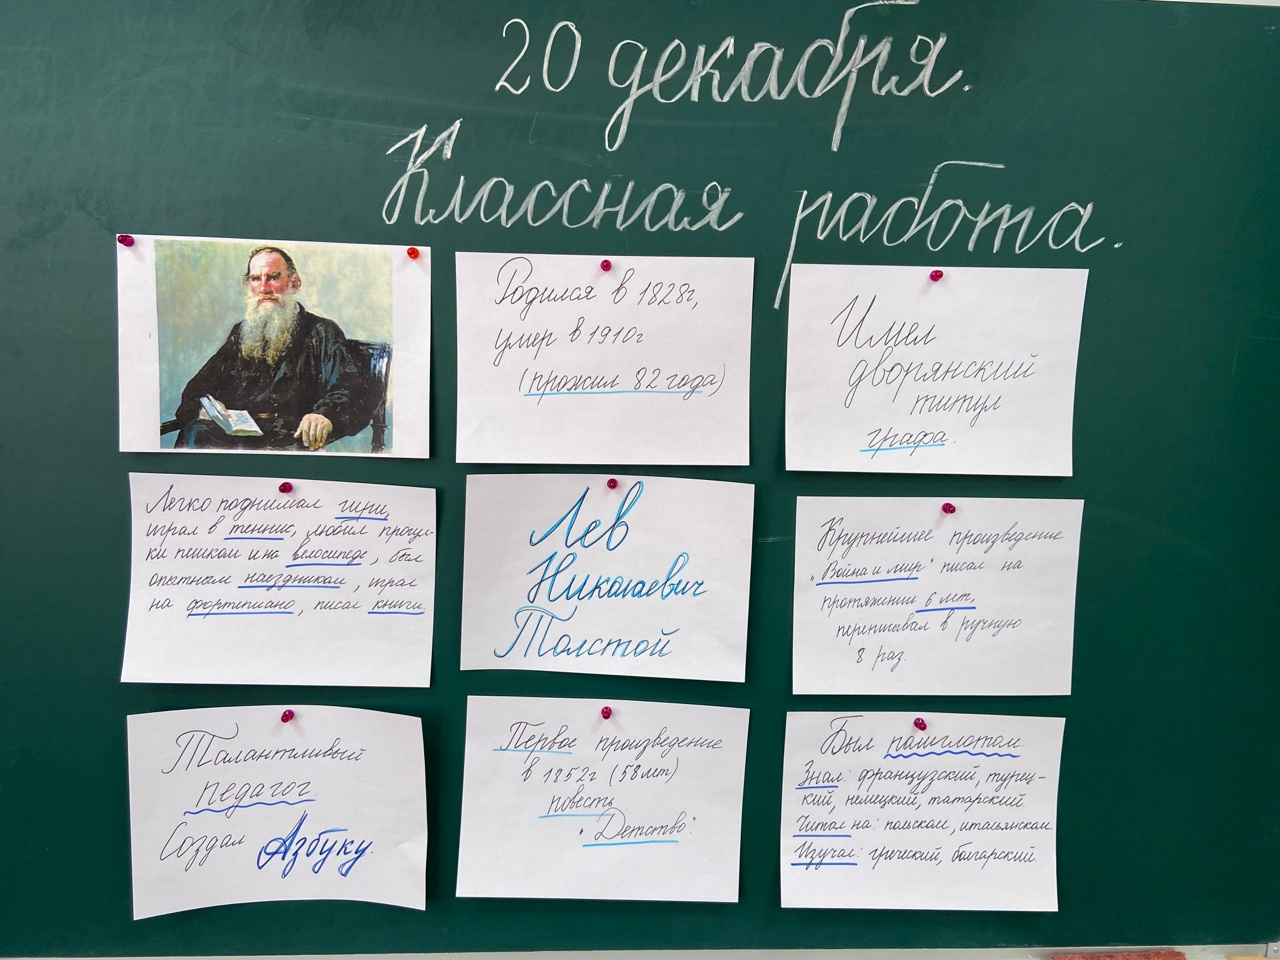 20 декабря.
Классная работа.
Родился в 1828г,
умер в 1910г
(прожил 82 года)
Имел
дворянский
титул
графа.
Легко поднимал гири,
играл в теннис, любил прогул-
ки пешком и на велосипеде, был
опытным наездником, играл
на фортепиано, писал книги
Лев
Николаевич
Толстой
Крупнейшее произведение
"Война и мир" писал на
протяжении 6 лет,
переписывал в ручную
8 раз.
Талантливый
педагог.
Создал Азбуку.
Первое произведение
в 1852г (58 лет)
повесть
"Детство".
Был полиглотом
Знал: французский, турец-
кий, немецкий, татарский.
Читал на: польском, итальянском
Изучал: греческий, болгарский.